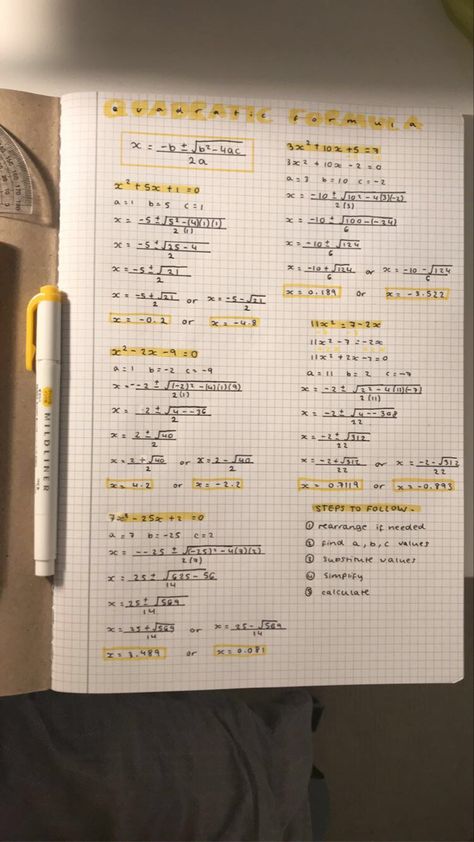 QUADRATIC FORMULA
quadratic formula
x = -b ± √b² - 4ac
2a
x² + 5x + 1 = 0
a = 1 b = 5 c = 1
x = -5 ± √5² - (4)(1)(1)
2(1)
x = -5 ± √25 - 4
2
x = -5 ± √21
2
x = -5 + √21 or x = -5 - √21
2 2
x = -0.2 or x = -4.8
x² - 2x - 9 = 0
a = 1 b = -2 c = -9
x = - -2 ± √(-2)² - (4)(1)(9)
2(1)
x = -2 ± √4 - -36
2
x = 2 ± √40
2
x = 2 + √40 or x = 2 - √40
2 2
x = 4.2 or x = -2.2
7x² - 25x + 2 = 0
a = 7 b = -25 c = 2
x = - -25 ± √(-25)² - 4(7)(2)
2(7)
x = 25 ± √625 - 56
14
x = 25 ± √569
14
x = 25 + √569 or x = 25 - √569
14 14
x = 3.489 or x = 0.081
3x² + 10x + 5 = 7
3x² + 10x - 2 = 0
a = 3 b = 10 c = -2
x = -10 ± √10² - 4(3)(-2)
2(3)
x = -10 ± √100 - (-24)
6
x = -10 ± √124
6
x = -10 + √124 or x = -10 - √124
6 6
x = 0.189 or x = -3.522
11x² = 7 - 2x
11x² - 7 = -2x
11x² + 2x - 7 = 0
a = 11 b = 2 c = -7
x = -2 ± √2² - 4(11)(-7)
2(11)
x = -2 ± √4 - -308
22
x = -2 ± √312
22
x = -2 + √312 or x = -2 - √312
22 22
x = 0.7119 or x = -0.893
STEPS TO FOLLOW -
① rearrange if needed
② find a, b, c values
③ substitute values
④ simplify
⑤ calculate
MILDLINER